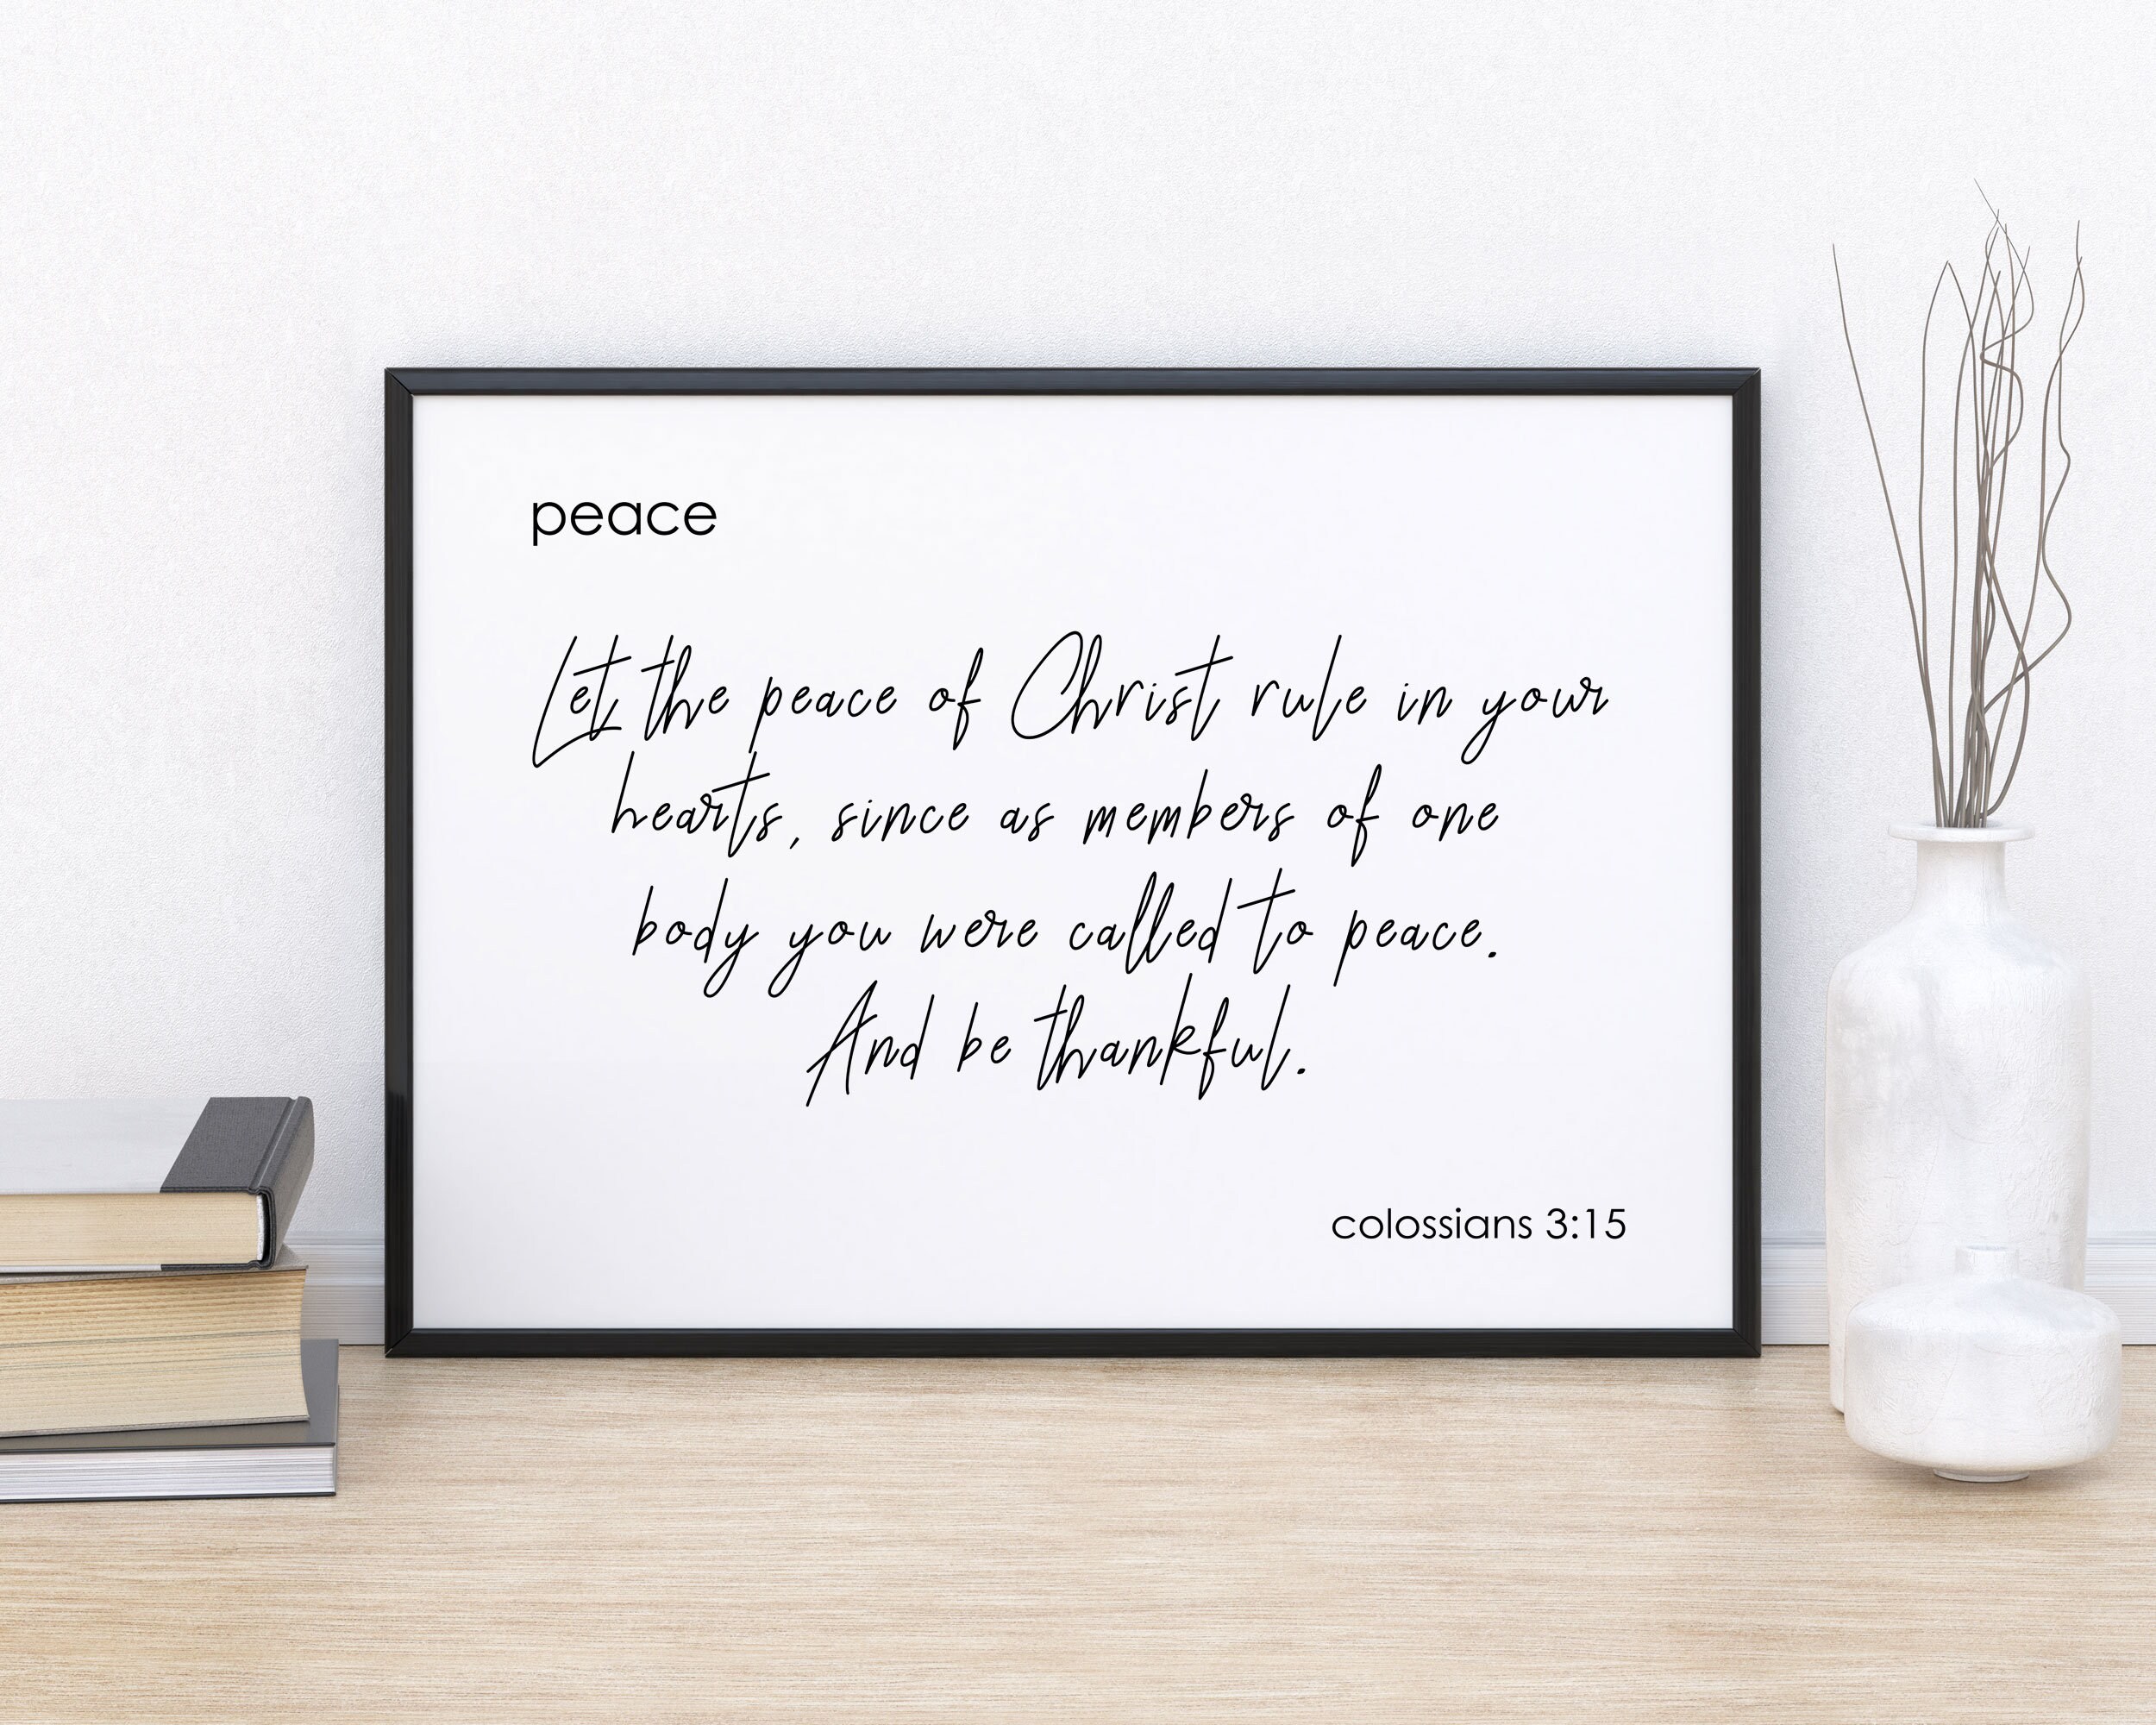 peace
Let the peace of Christ rule in your
hearts, since as members of one
body you were called to peace.
And be thankful.
colossians 3:15